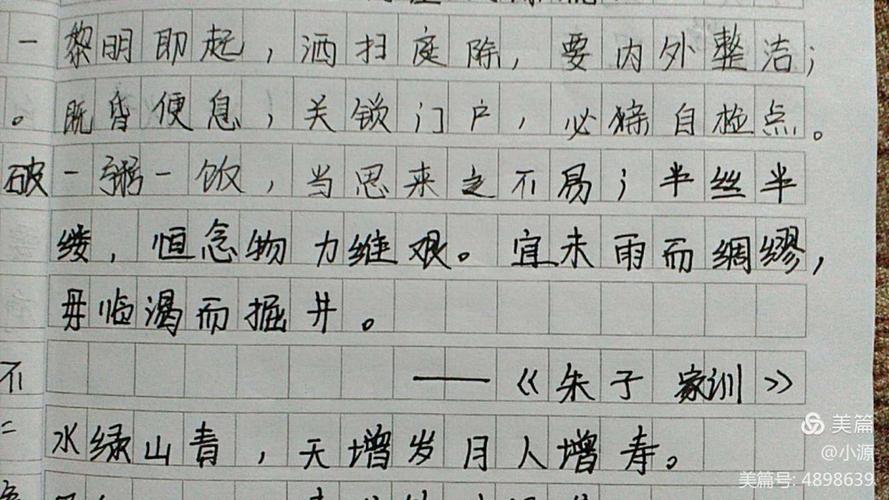 一黎明即起，洒扫庭除，要内外整洁；
。既昏便息，关锁门户，必亲自检点。
破一粥一饭，当思来之不易；半丝半
缕，恒念物力维艰。宜未雨而绸缪，
毋临渴而掘井。
不 ——《朱子家训》
二水绿山青，天增岁月人增寿。
美篇
@小源
美篇号: 4898639